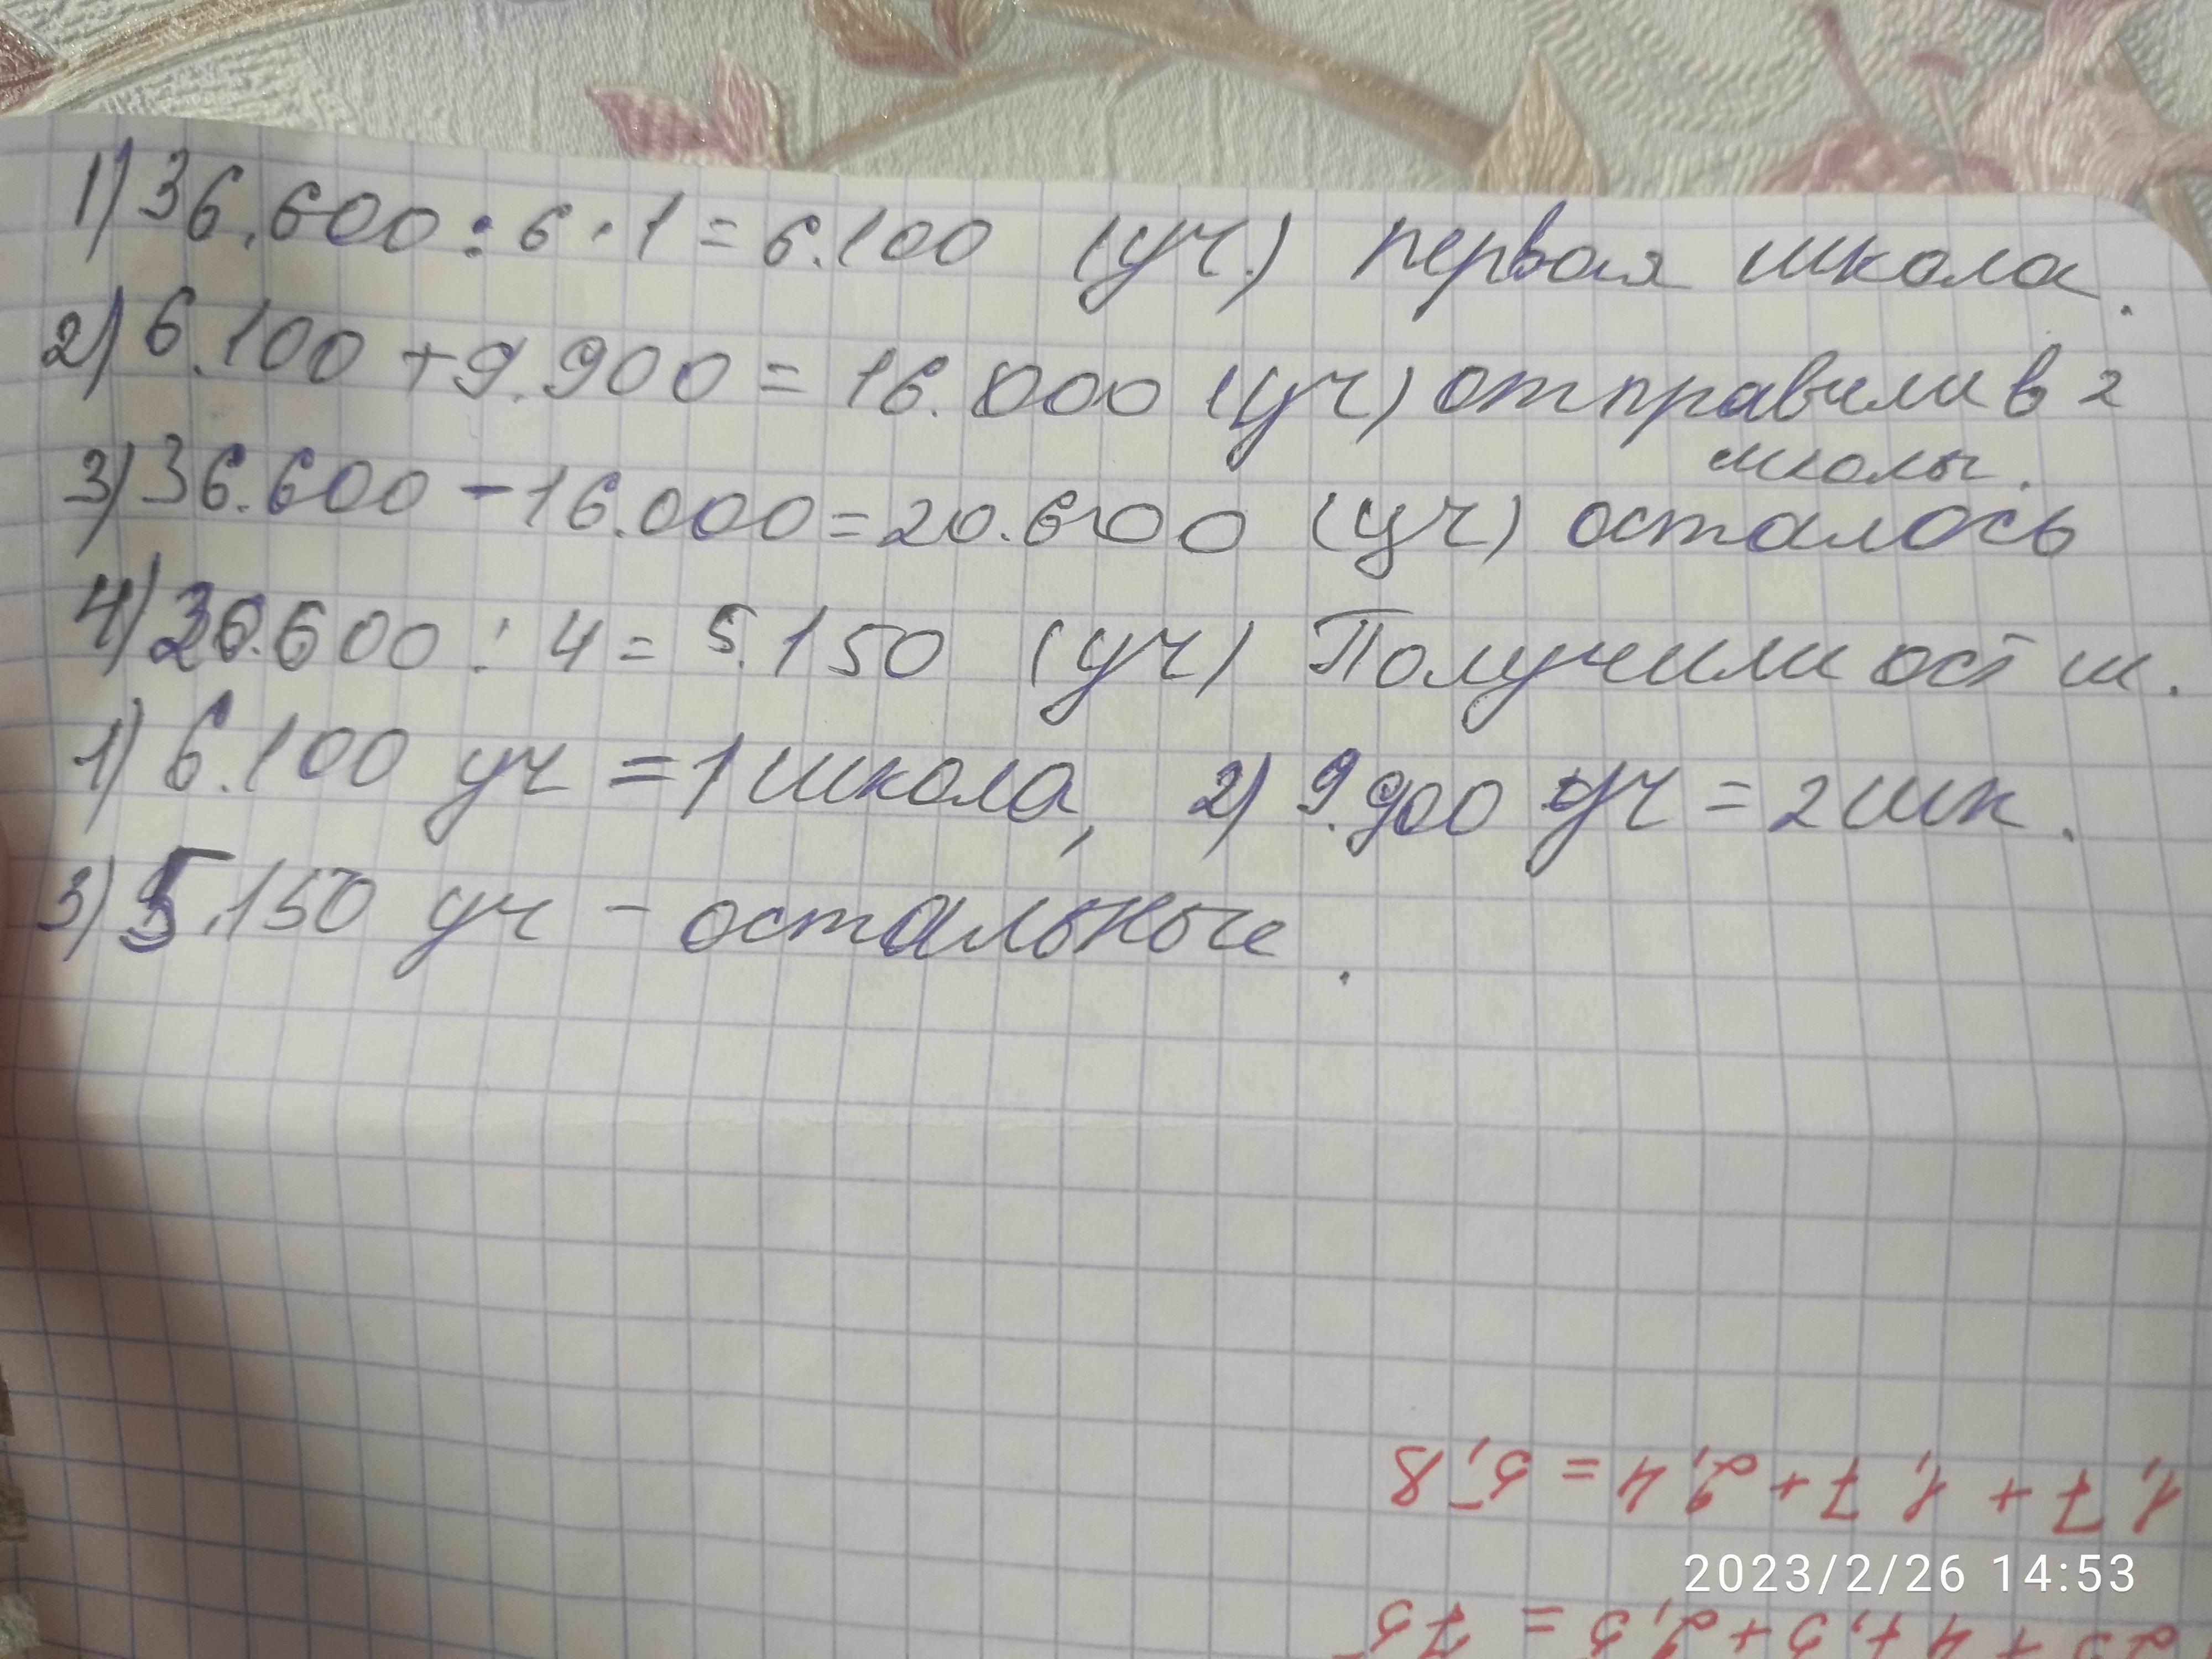 1) 36.600 : 6 · 1 = 6.100 (уч.) первая школа.
2) 6.100 + 9.900 = 16.000 (уч) отправили в 2
школы.
3) 36.600 - 16.000 = 20.600 (уч) осталось
4) 20.600 : 4 = 5.150 (уч) Получили ост ш.
1) 6.100 уч = 1 школа, 2) 9.900 уч = 2 шк.
3) 5.150 уч - остальные.
1,7 + 1,7 + 2,4 = 5,8
2023/2/26 14:53
= 75